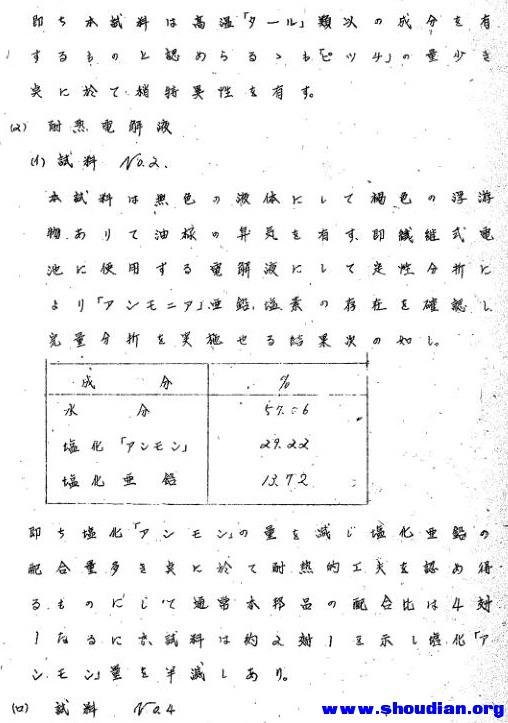 即ち本試料は高温「タール」類似の成分を有
するものと認めらるゝも「ピツチ」の量少き
点に於て稍特異性を有す。
(2) 耐熱電解液
(イ) 試料 No.2.
本試料は黒色の液体にして褐色の浮游
物ありて油様の臭気を有す、即繊維式電
池に使用する電解液にして定性分析に
より「アンモニア」亜鉛、塩素の存在を確認し
定量分析を実施せる結果次の如し。
成分 %
水分 57.06
塩化「アンモン」 29.22
塩化亜鉛 13.72
即ち塩化「アンモン」の量を減じ塩化亜鉛の
配合量多き点に於て耐熱的工夫を認め得
るものにして通常本邦品の配合比は4対
1なるに本試料は約2対1を示し塩化「ア
ンモン」量を半減しあり。
(ロ) 試料 No.4
www.shoudian.org